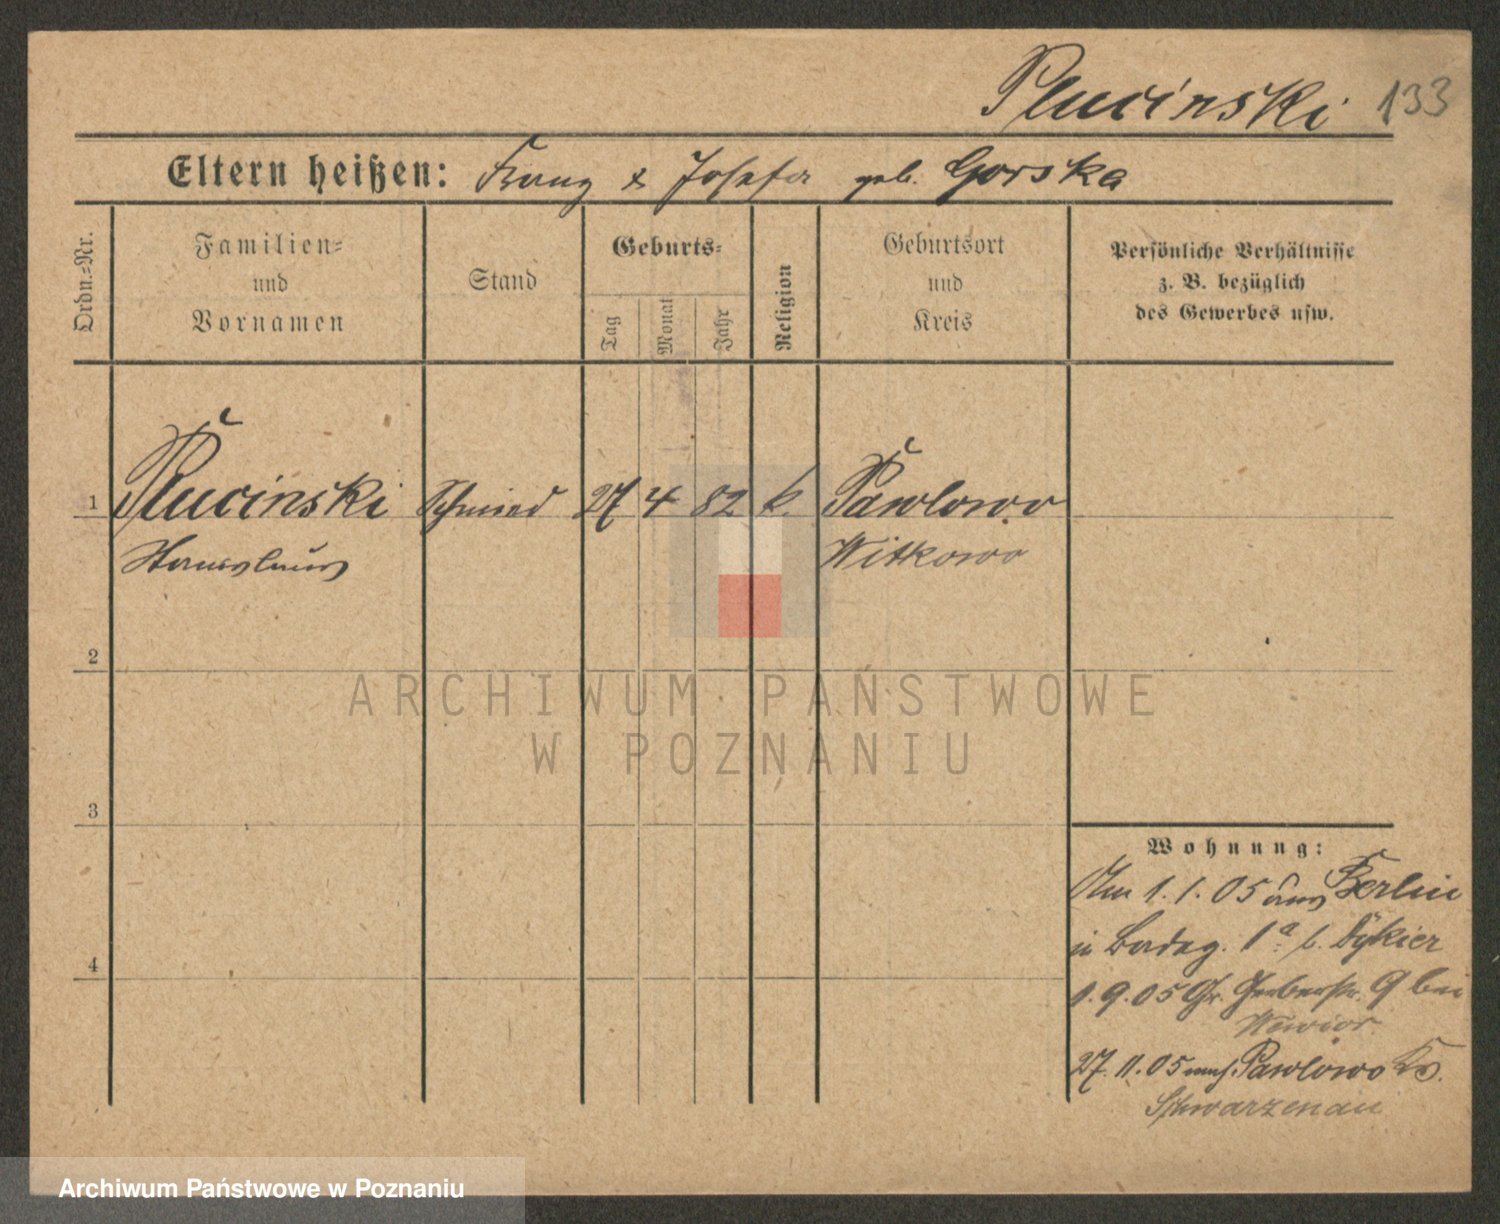 Plucinski 133
Eltern heißen: Franz & Josefa geb. Gorska
Ordn.=Nr.
Familien=
und
Vornamen
Stand
Geburts=
Tag
Monat
Jahr
Religion
Geburtsort
und
Kreis
Persönliche Verhältnisse
z. B. bezüglich
des Gewerbes usw.
1 Plucinski Schmied 27 4 82 k. Pawlowo
Stanislaus Witkowo
2
3
4
ARCHIWUM PAŃSTWOWE
W POZNANIU
Wohnung:
Am 1.1.05 aus Berlin
in 1a b. Dykier
1.9.05 Gr. Gerberstr. 9 bei
Wawior
27.11.05 nach Pawlowo Krs.
Schwarzenau
Archiwum Państwowe w Poznaniu